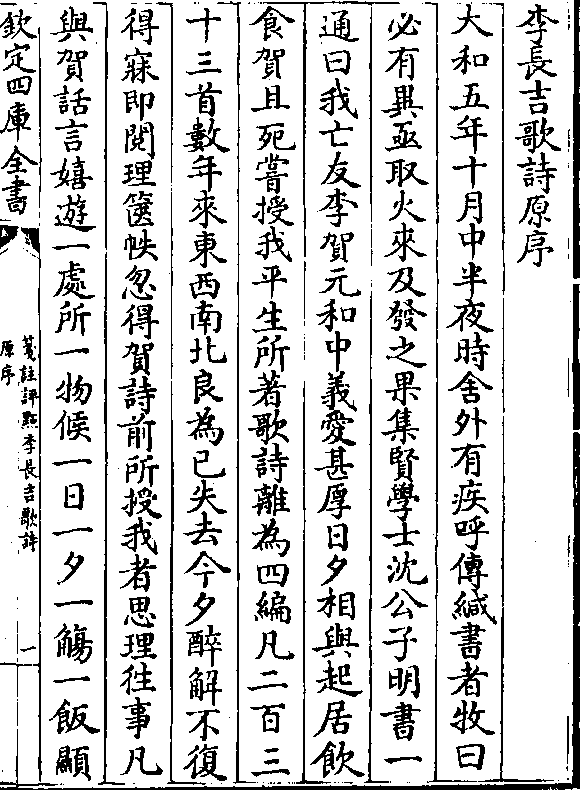 李長吉歌詩原序
大和五年十月中半夜時舍外有疾呼傳緘書者牧曰
必有異亟取火來及發之果集賢學士沈公子明書一
通曰我亡友李賀元和中義愛甚厚日夕相與起居飲
食賀且死嘗授我平生所著歌詩離為四編凡二百三
十三首數年來東西南北良為已失去今夕醉解不復
得寐即閱理篋帙忽得賀詩前所授我者思理徃事凡
與賀話言嬉遊一處所一物候一日一夕一觴一飯顯
欽定四庫全書
箋註評點李長吉歌詩
原序
一